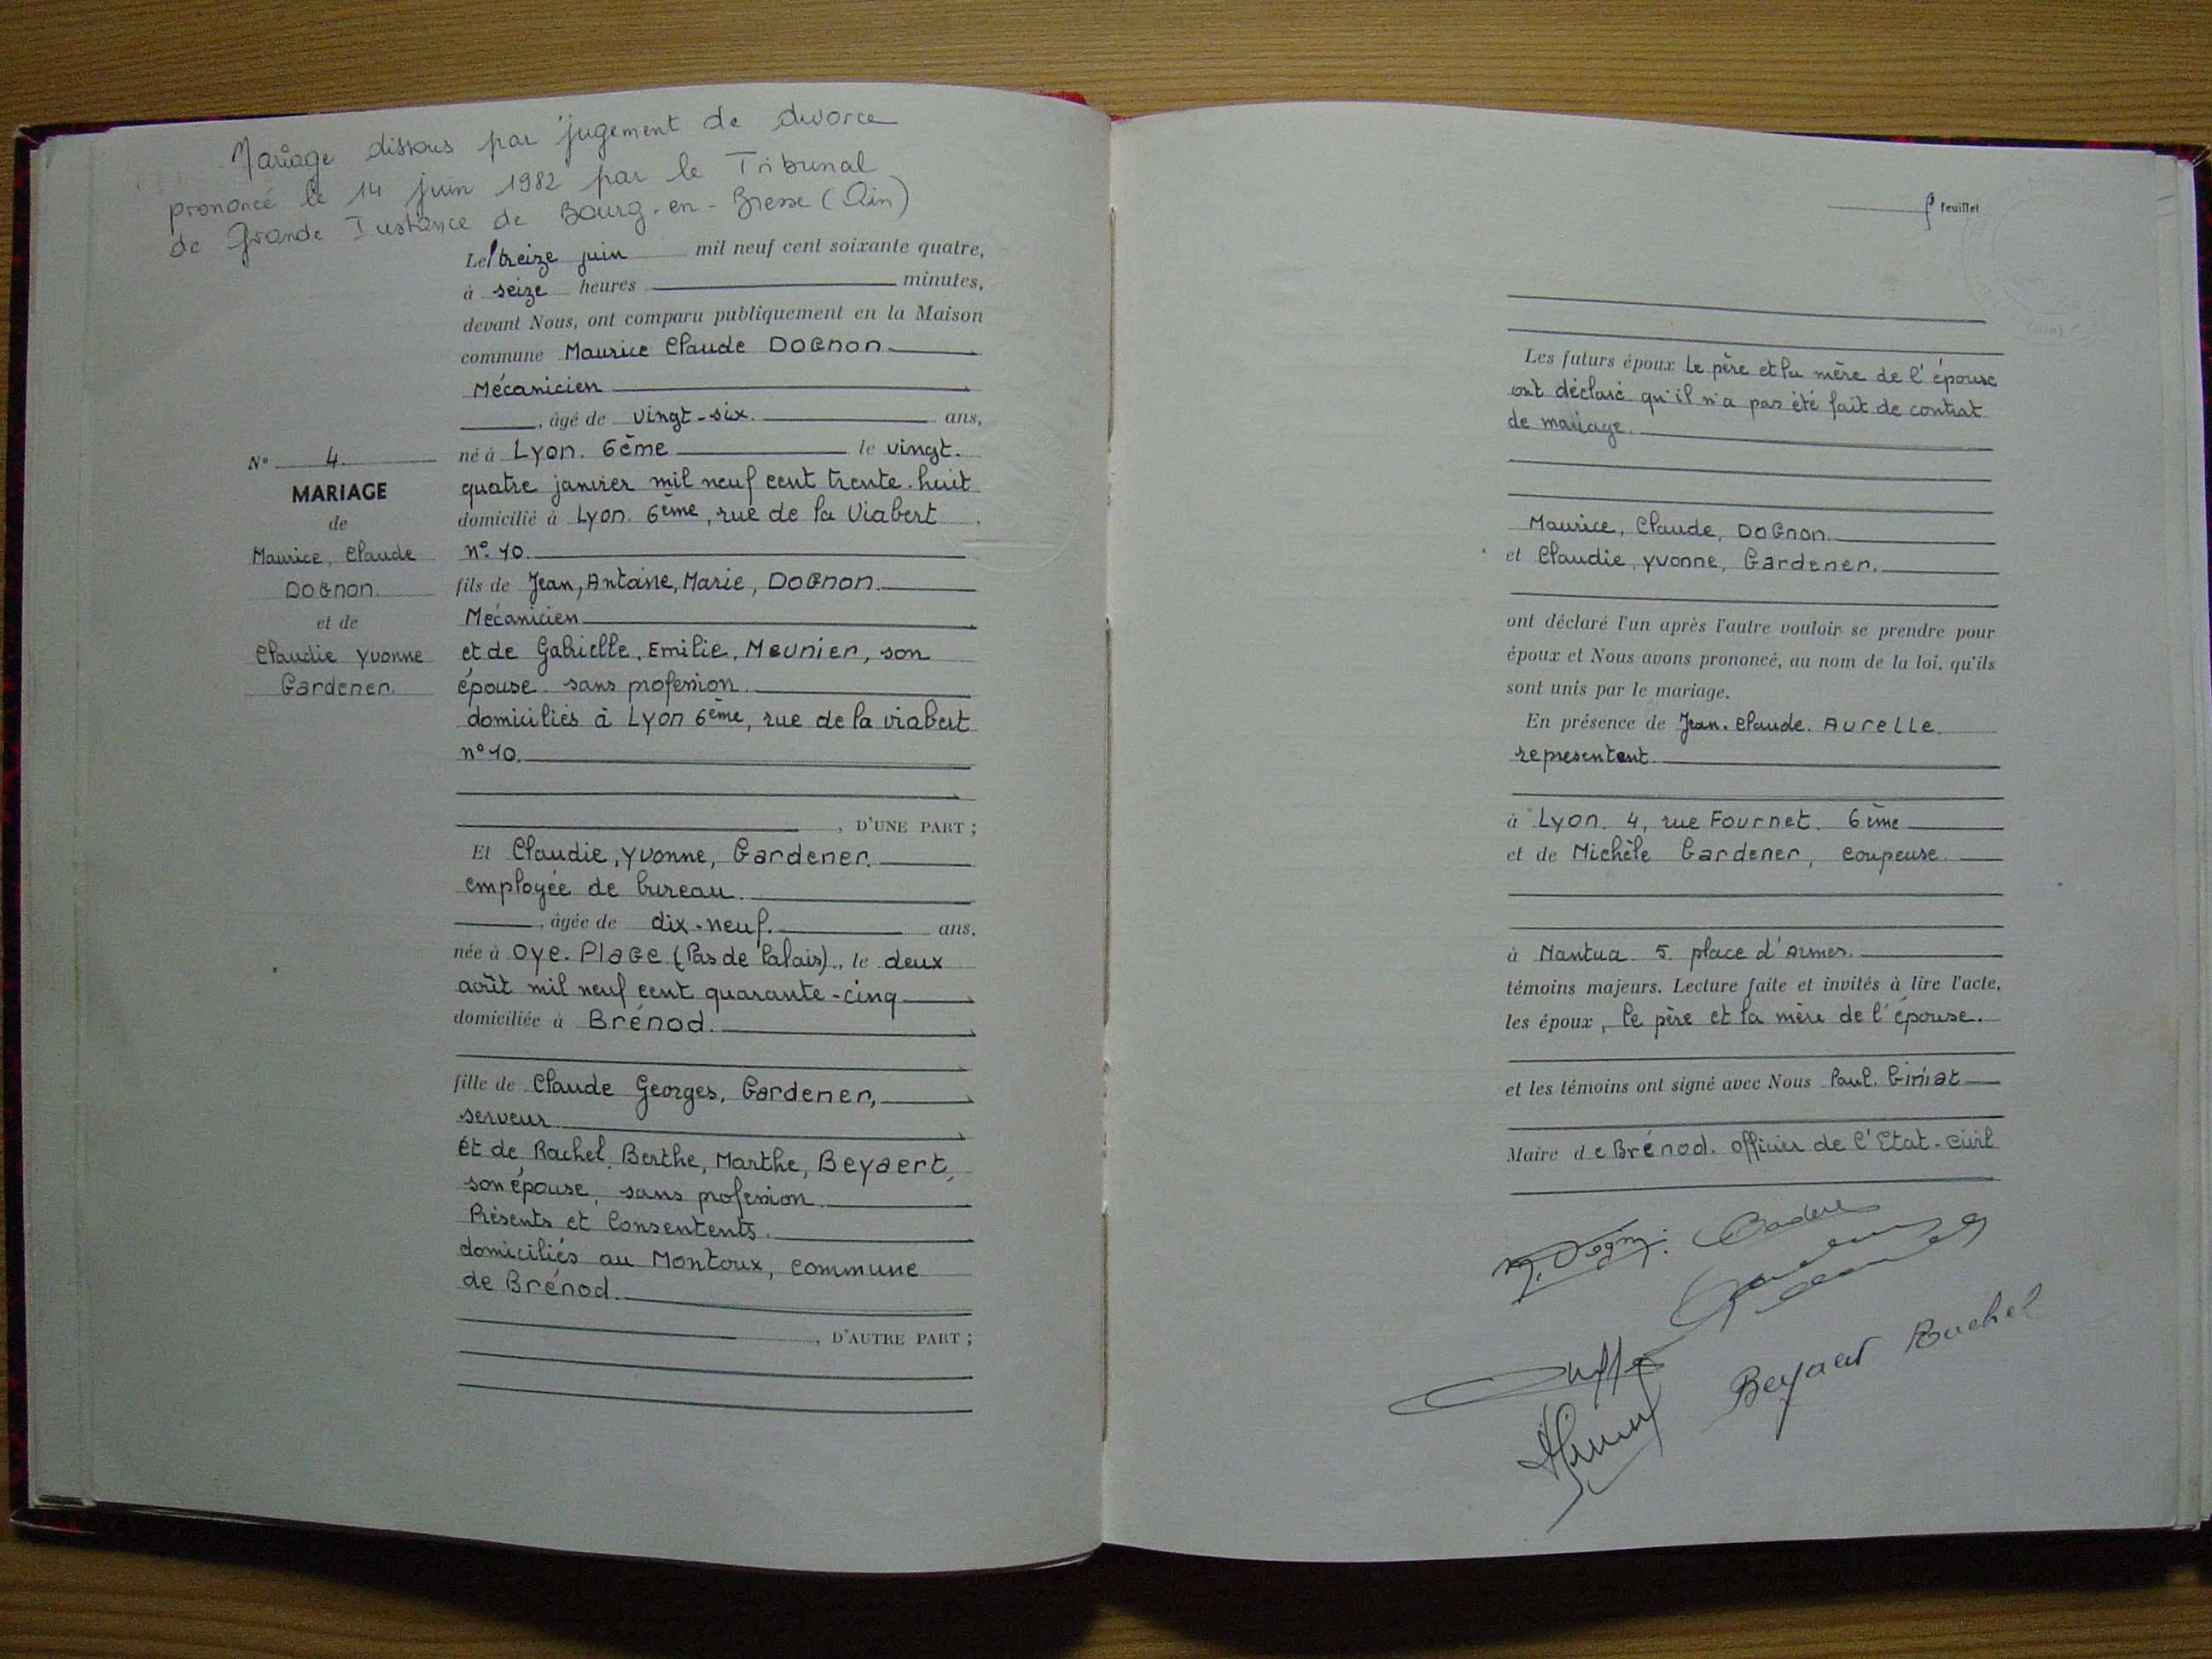 Mariage dissous par jugement de divorce
prononcé le 14 juin 1982 par le Tribunal
de Grande Instance de Bourg-en-Bresse (Ain)
Le treize juin mil neuf cent soixante quatre,
à seize heures minutes,
devant Nous, ont comparu publiquement en la Maison
commune Maurice Claude DOGNON
Mécanicien
, âgé de vingt-six. ans,
né à Lyon. 6ème le vingt.
quatre janvier mil neuf cent trente-huit
domicilié à Lyon. 6ème, rue de la Viabert
n° 10.
fils de Jean, Antoine, Marie, DOGNON.
Mécanicien
et de Gabrielle, Emilie, Meunier, son
épouse sans profession.
domiciliés à Lyon 6ème, rue de la viabert
n° 10.
, D'UNE PART ;
N° 4.
MARIAGE
de
Maurice, Claude
DOGNON.
et de
Claudie Yvonne
Gardener.
Et Claudie, Yvonne, Gardener.
employée de bureau.
, âgée de dix-neuf. ans,
née à Oye-Plage (Pas de Calais)., le deux
août mil neuf cent quarante-cinq
domiciliée à Brénod.
fille de Claude Georges, Gardener,
serveur
et de Rachel, Berthe, Marthe, Beyaert,
son épouse, sans profession
Présents et Consentents.
domiciliés au Montoux, commune
de Brénod.
, D'AUTRE PART ;
feuillet
Les futurs époux Le père et la mère de l'épouse
ont déclaré qu'il n'a pas été fait de contrat
de mariage.
Maurice, Claude, DOGNON.
et Claudie, Yvonne, Gardener.
ont déclaré l'un après l'autre vouloir se prendre pour
époux et Nous avons prononcé, au nom de la loi, qu'ils
sont unis par le mariage.
En présence de Jean-Claude. AURELLE.
representant.
à Lyon. 4, rue Fournet. 6ème
et de Michèle Gardener, coupeuse.
à Nantua 5 place d'Armes.
témoins majeurs. Lecture faite et invités à lire l'acte,
les époux, le père et la mère de l'épouse.
et les témoins ont signé avec Nous Paul. Giniat
Maire de Brénod. officier de l'Etat-civil
Beyaert Rachel